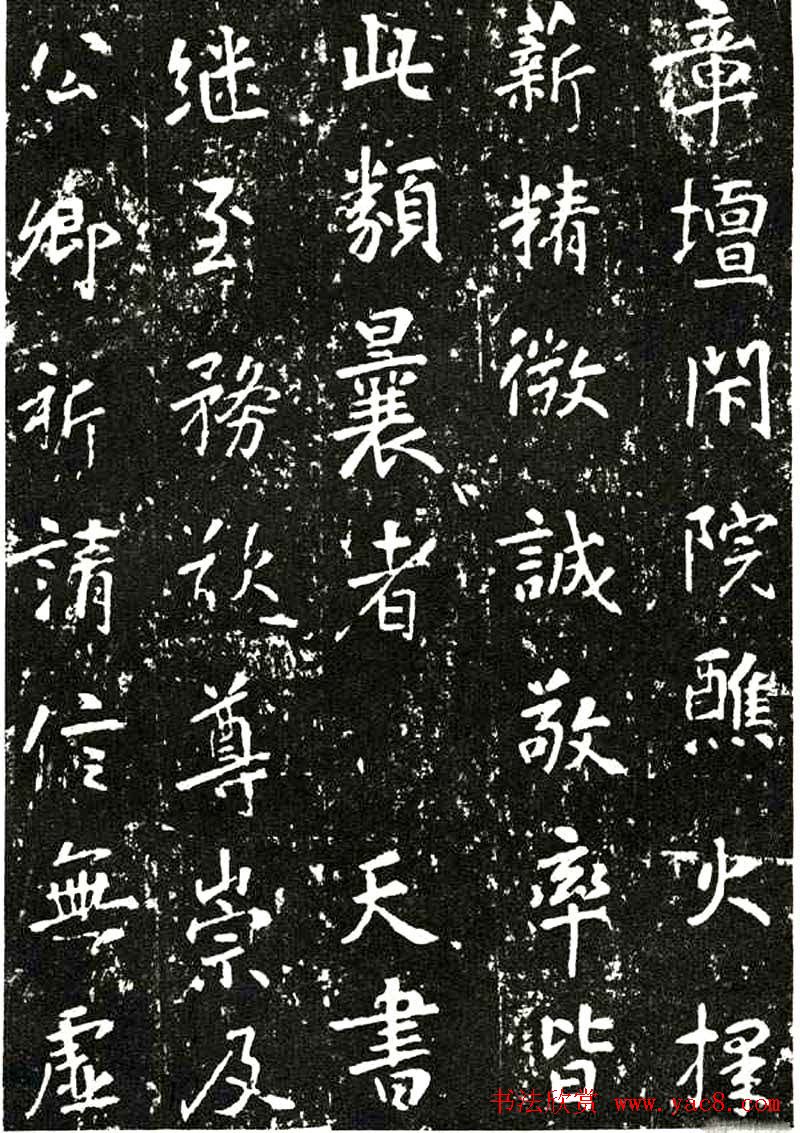 章壇閇院醮火擇
薪精微誠敬率皆
此類曩者天書
继至務欲尊崇及
公卿祈請信無虛
书法欣赏 www.yac8.com